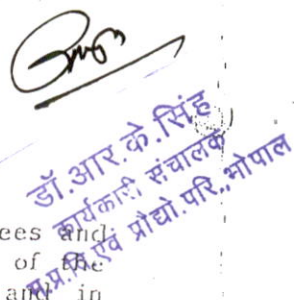 डॉ.आर.के.सिंह
कार्यकारी संचालक
म.प्र.वि.एवं प्रौद्यो.परि.,भोपाल
ees and
of the
and in